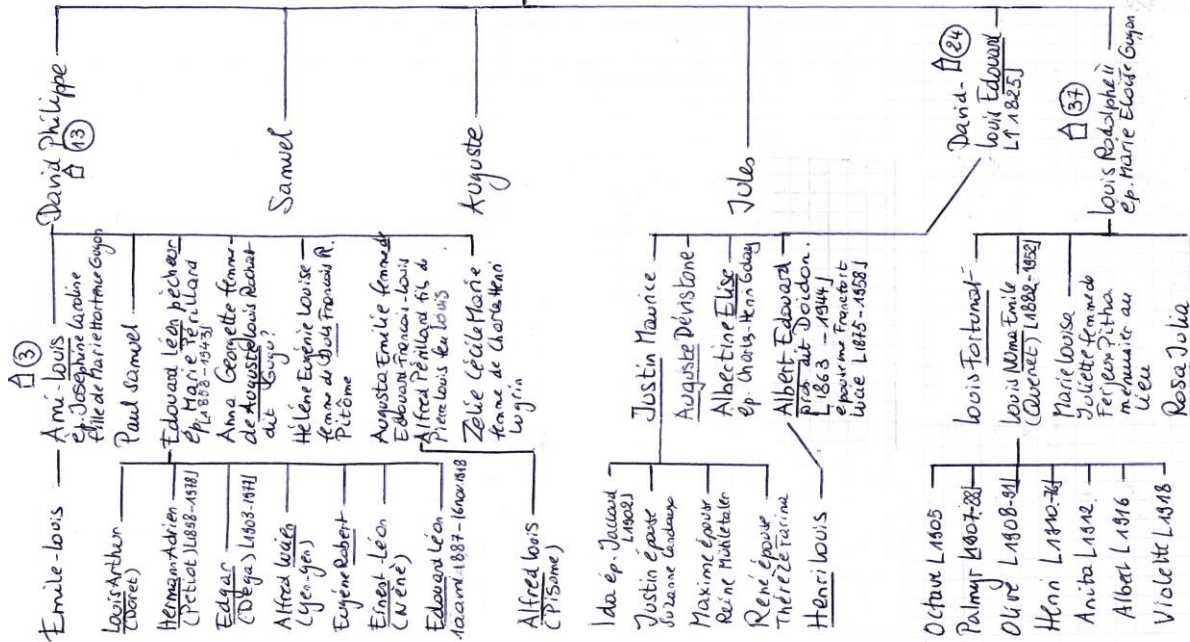 David Philippe
13
Samuel
Auguste
Jules
David-
24
Louis Edouard
L† 1825⌋
37
Louis Rodolphe II
ép. Marie Eloïse Guyon
3
Ami-Louis
ép. Joséphine Caroline
fille de Marie Hortense Guyon
Paul Samuel
Edouard Léon pêcheur
ép. Marie Périllard
L1858-1943⌋
Anna Georgette femme
de Auguste Louis Rochat
dit Gugu?
Hélène Eugénie Louise
femme de Jules François R.
Pitôme
Augusta Emilie femme de
Edouard-François-Louis
Alfred Périllard fils de
Pierre Louis feu Louis
Zélie Cécile Marie
femme de Charles Henri
Lugrin
Justin Maurice
Auguste Dévistone
Albertine Elise
ép. Charles-Henri Golay
Albert Edouard
prop. dit Doidon.
L1863-1944⌋
épouse Francfort
Lucie L1875-1958⌋
Louis Fortunat
Louis Numa Emile
(Quenet) L1882-1952⌋
Marie Louisa
Juliette femme de
Ferjeux Pitha
menuisier au
Lieu
Rosa Julia
Emile-Louis
Louis Arthur
(Doret)
Hermann Adrien
(Petiot) L1898-1978⌋
Edgar
(Dega) L1903-1977⌋
Alfred Lucien
(Yen-yen)
Eugène Robert
Ernest-Léon
(Nénè)
Edouard Léon
1887-16 nov 1918
Alfred Louis
(Pisome)
Ida ép. Jaccard
L1902⌋
Justin épouse
Suzanne Landaux
Maxime épouse
Reine Mühletaler
René épouse
Thérèze Farina
Henri Louis
Octave L1905
Palmyr L1907-88⌋
Olive L1908-91⌋
Henri L1910-76⌋
Anita L1912
Albert L1916
Violette L1918